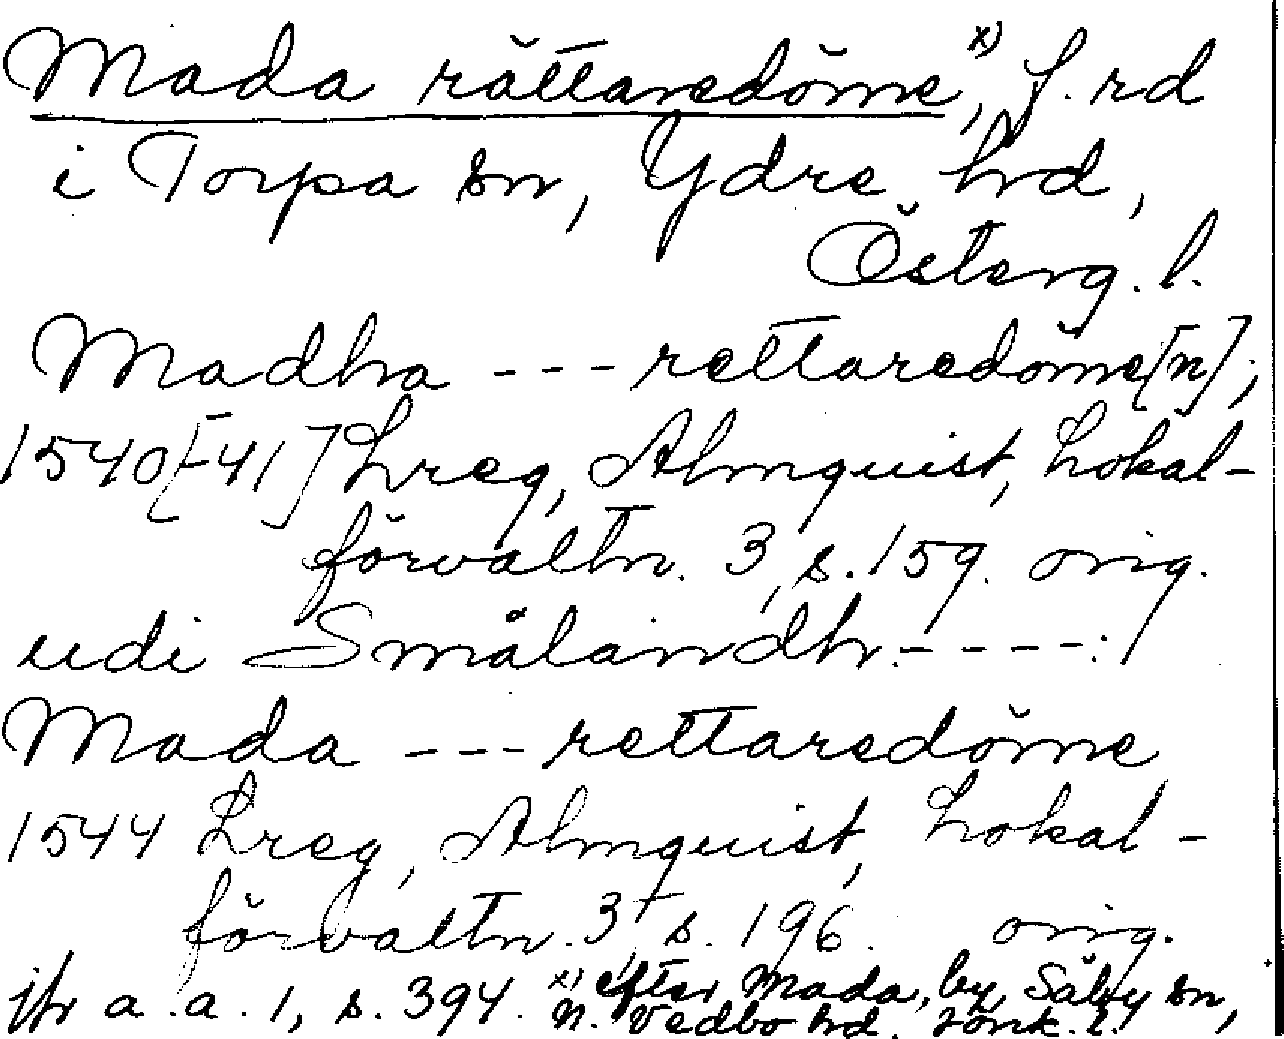 Mada rättaredöme, x) f. rd
i Torpa sn, Ydre hd,
Österg. l.
Madha --- rettaredöme[n];
1540[-41] Lreg, Almquist, Lokal-
förvaltn. 3, s. 159. orig.
udi Smålandh:----:
Mada --- rettaredöme
1544 Lreg, Almquist, Lokal-
förvaltn. 3, s. 196. orig.
jfr a.a. 1, s. 394. x) efter Mada, by, Säby sn,
N. Vedbo hd. Jönk. l.